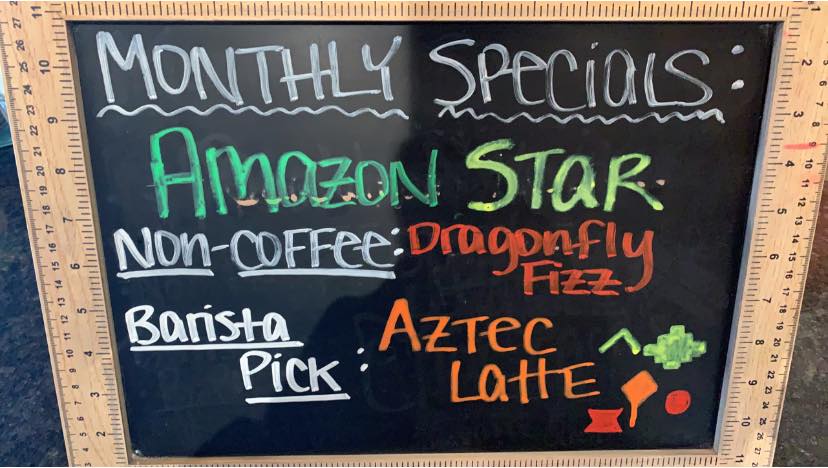 Monthly Specials:
Amazon Star
Non-Coffee: Dragonfly
Fizz
Barista Aztec
Pick: Latte